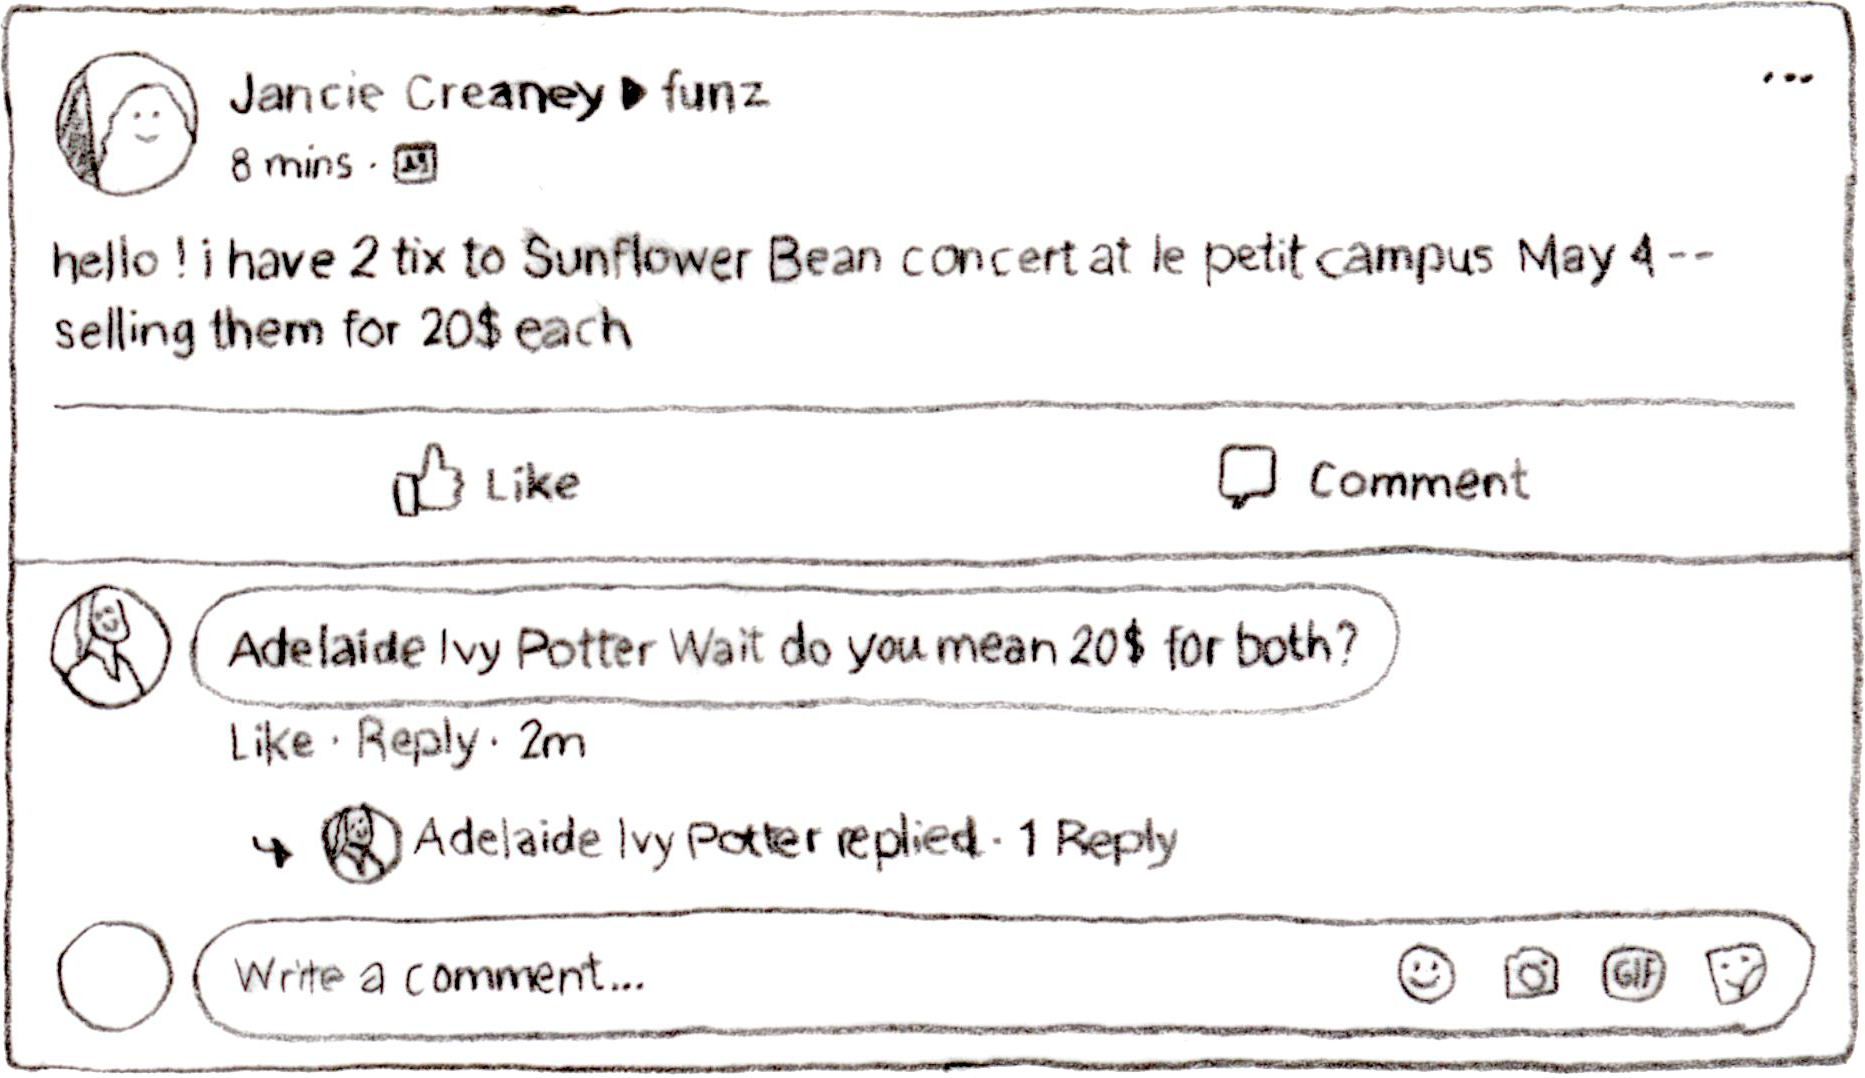 Jancie Creaney ▶ funz
...
8 mins ·
hello! i have 2 tix to Sunflower Bean concert at le petit campus May 4 --
selling them for 20$ each
Like
Comment
Adelaide Ivy Potter Wait do you mean 20$ for both?
Like · Reply · 2m
↳ Adelaide Ivy Potter replied · 1 Reply
Write a comment...
GIF